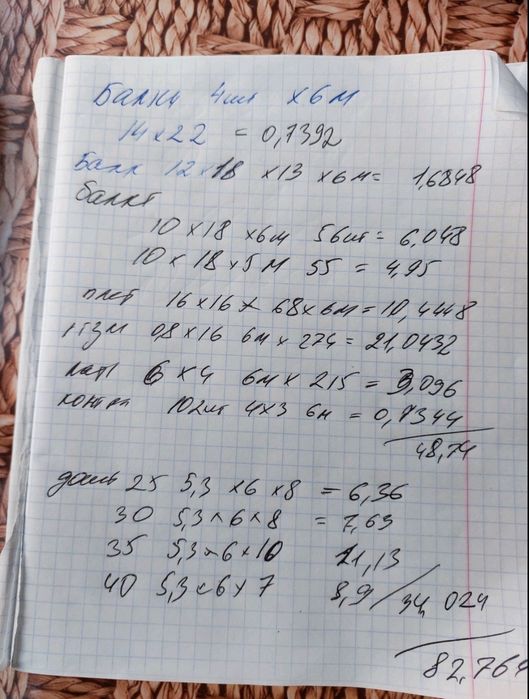 Балки 4шт х6м
14х22 = 0,7392
Балк 12х18 х13 х6м= 1,6848
балкт
10х18 х6м 56шт = 6,048
10х18х5м 55 = 4,95
16х16х 68х6м=10,4448
0,8х16 6м х 274=21,0432
6х4 6м х 215 = 3,096
контра 102шт 4х3 6м = 0,7344
48,74
25 5,3 х6х8 = 6,36
30 5,3х6х8 = 7,63
35 5,3х6х10 11,13
40 5,3х6х7 8,9/34,024
82,764